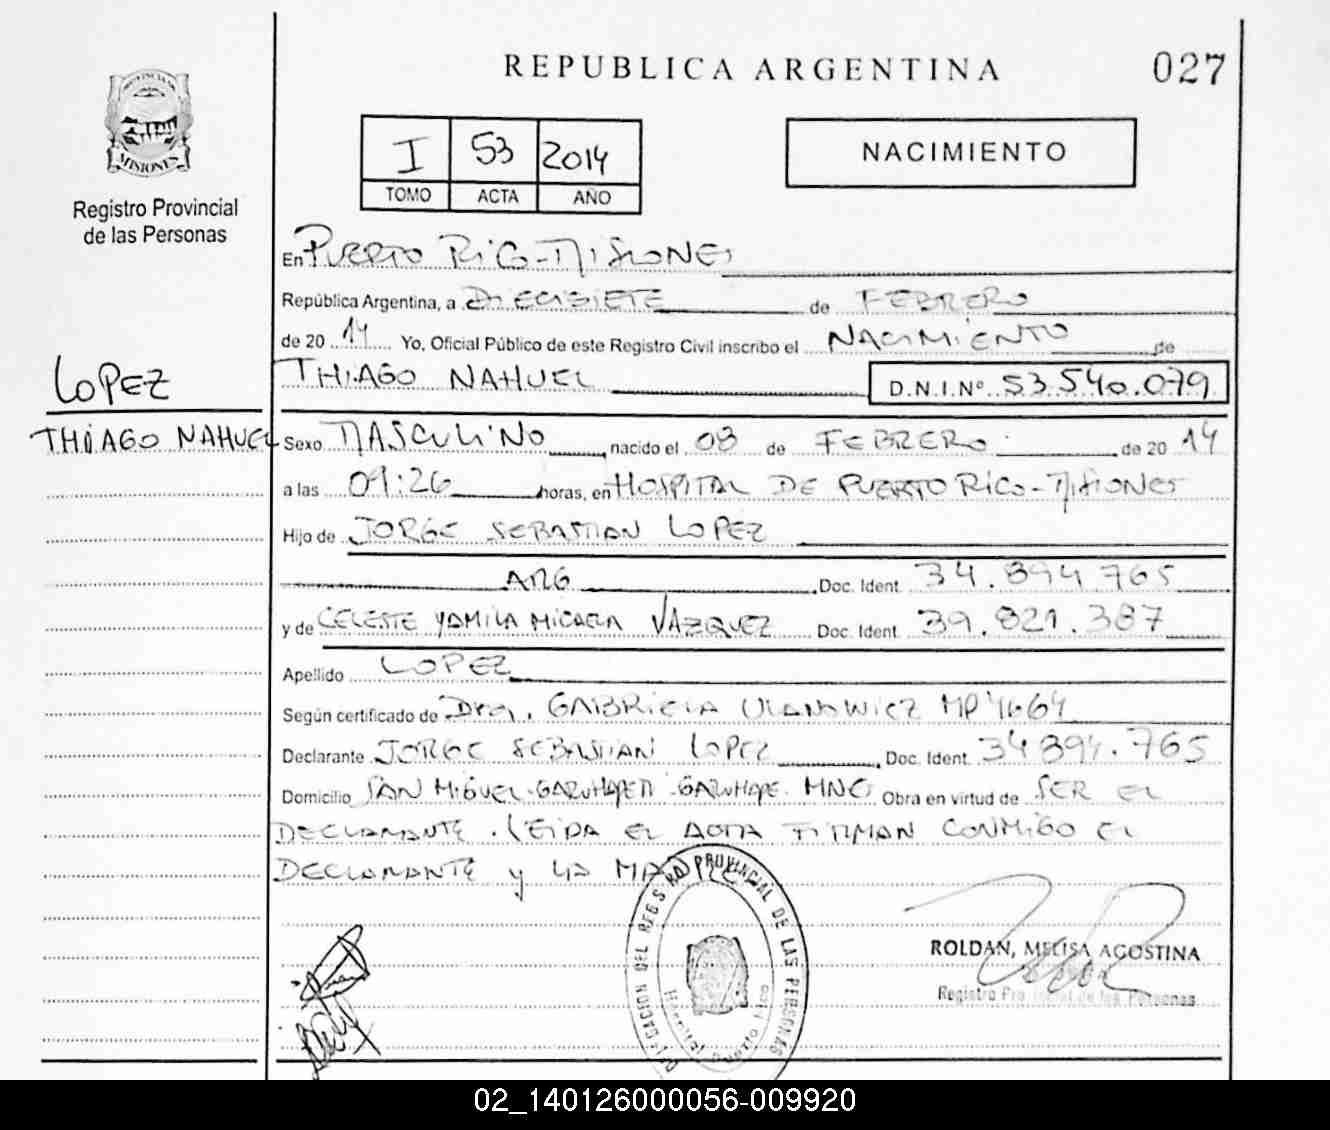 REPUBLICA ARGENTINA
027
PROVINCIA DE
MISIONES
Registro Provincial
de las Personas
I 53 2014
TOMO ACTA AÑO
NACIMIENTO
En PUERTO RICO - MISIONES
República Argentina, a DIECISIETE de FEBRERO
de 20 14 Yo, Oficial Público de este Registro Civil inscribo el NACIMIENTO de
THIAGO NAHUEL D.N.I.Nº 53.540.079
LOPEZ
THIAGO NAHUEL
Sexo MASCULINO nacido el 08 de FEBRERO de 20 14
a las 09:26 horas, en HOSPITAL DE PUERTO RICO - MISIONES
Hijo de JORGE SEBASTIAN LOPEZ
ARG Doc. Ident. 34.894.765
y de CELESTE YAMILA MICAELA VAZQUEZ Doc. Ident. 39.821.387
Apellido LOPEZ
Según certificado de Dra. GABRIELA ULANOWICZ MP 4664
Declarante JORGE SEBASTIAN LOPEZ Doc. Ident. 34894.765
Domicilio SAN MIGUEL - GARUHAPE - MNES Obra en virtud de SER EL
DECLARANTE. LEIDA EL ACTA FIRMAN CONMIGO EL
DECLARANTE y LA MADRE
DELEGACION DEL REGISTRO PROVINCIAL DE LAS PERSONAS
Hospital Puerto Rico
ROLDAN, MELISA AGOSTINA
Registro Provincial de las Personas
02_140126000056-009920